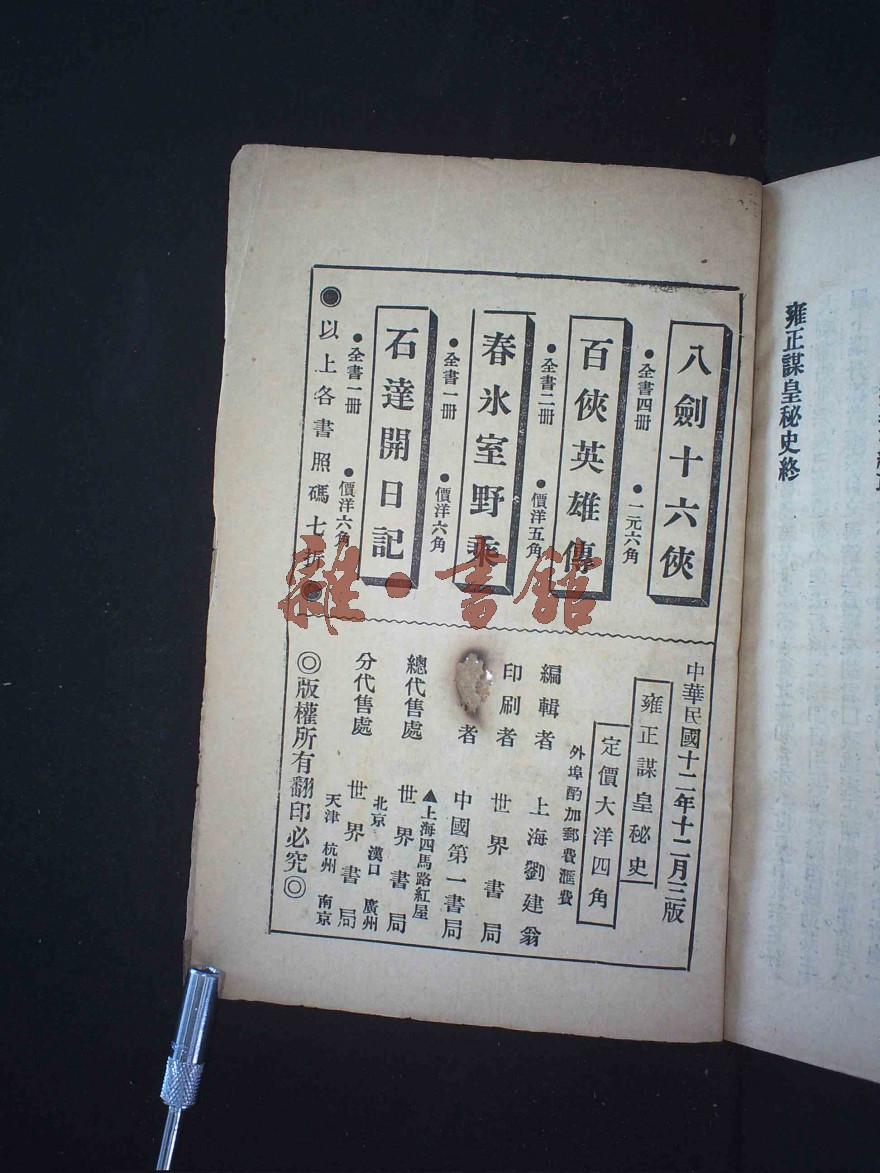 雍正謀皇秘史終
八劍十六俠
●全書四冊 ●一元六角
百俠英雄傳
●全書二冊 ●價洋五角
春氷室野乘
●全書一冊 ●價洋六角
石達開日記
●全書一冊 ●價洋六角
●以上各書照碼七折●
中華民國十二年十二月三版
雍正謀皇秘史
定價大洋四角
外埠酌加郵費滙費
編輯者 上海劉建翁
印刷者 世界書局
者 中國第一書局
▲上海四馬路紅屋
總代售處 世界書局
北京 漢口 廣州
分代售處 世界書局
天津 杭州 南京
◎版權所有翻印必究◎
雜·書館